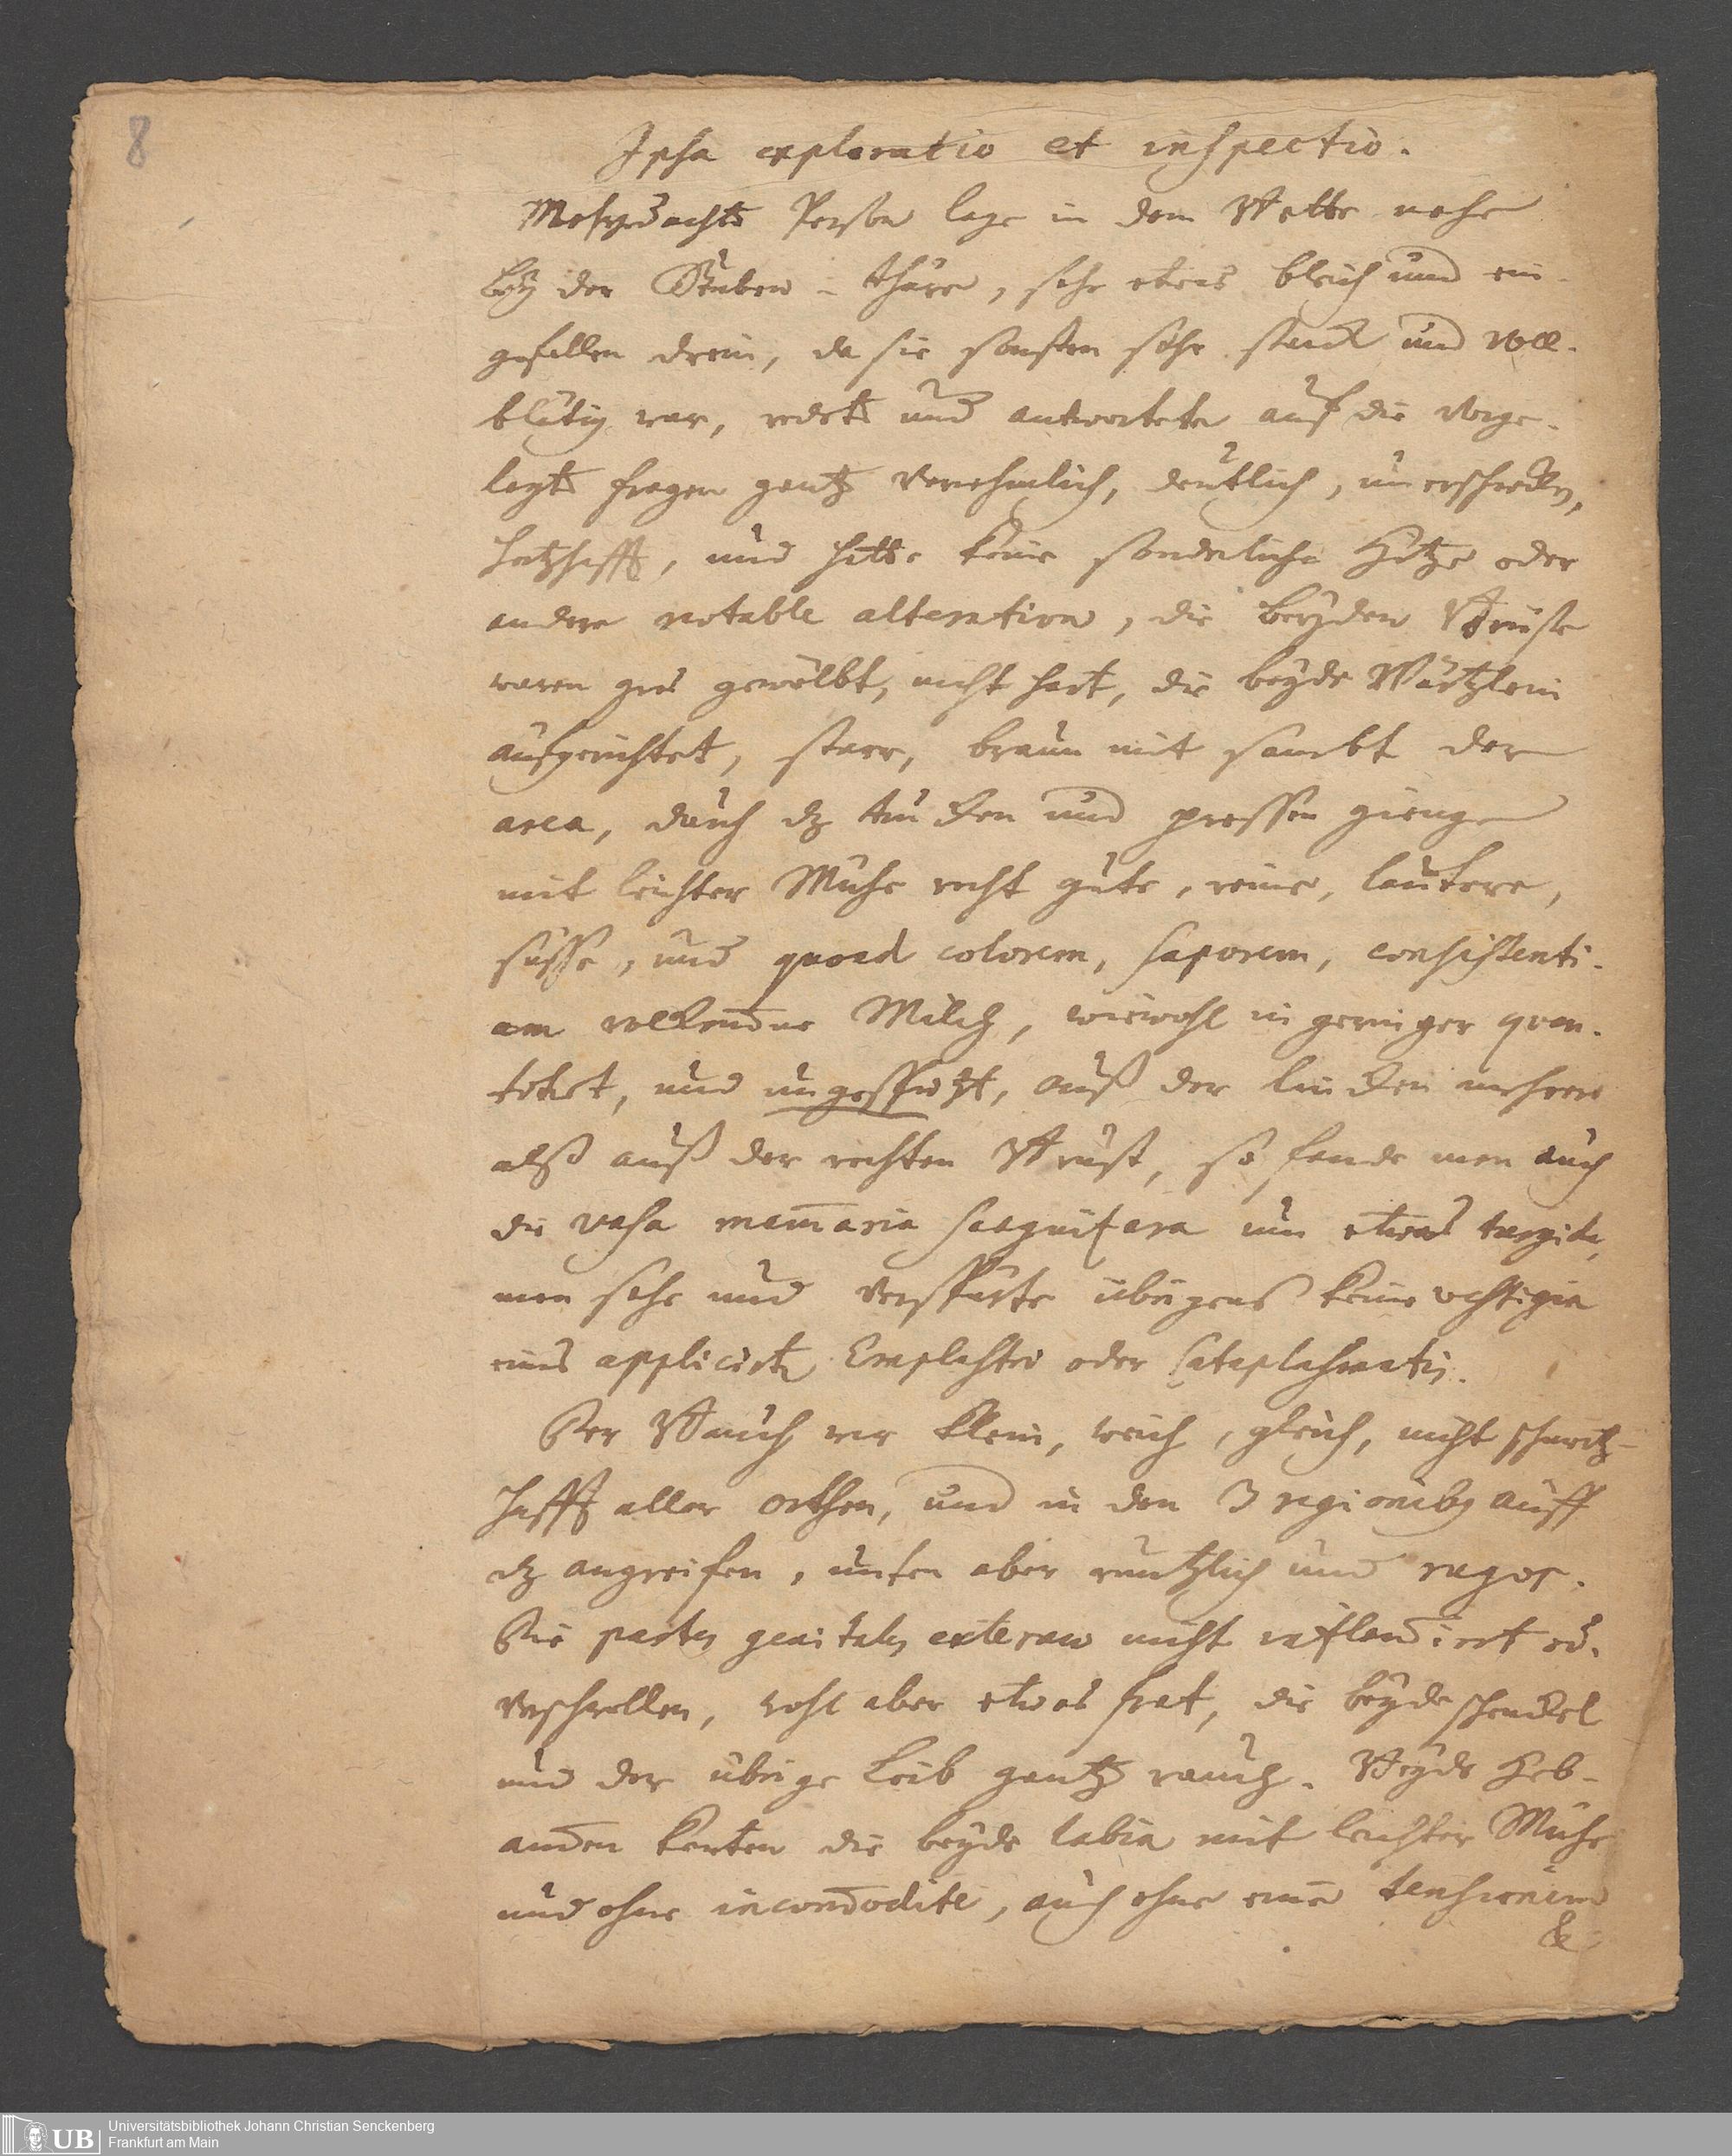 8
Ipsa exploratio et inspectio.
Mehrgedachte Person lage in dem Bette nahe
bey der Stuben-thüre, sahe etwas bleich und ein-
gefallen drein, da sie sonsten sehr starck und voll-
blütig war, redete und antwortete auf die vorge-
legte fragen gantz vernehmlich, deutlich, unerschrocken,
hertzhafft, und hatte keine sonderliche Hitze oder
andere notable alteration, die beyden Brüste
waren gros gewölbt, nicht hart, die beyde Wärtzlein
aufgerichtet, starr, braun mit sambt der
area, durch dz trucken und pressen gienge
mit leichter Mühe recht gute, reine, lautere,
süsse, und quoad colorem, saporem, consistenti-
am vollkommene Milch, wiewohl in geringer quan-
titaet, und ungespritzt, auß der lincken mehrer
alß auß der rechten Brust, so fande man auch
die vasa mammaria sanguifera um etwas turgida,
man sahe und verspürte übrigens keine vestigia
eines applicirten Emplastri oder Cataplasmatis.
Der Bauch war klein, weich, gleich, nicht schmertz-
hafft aller orthen, und in den 3 regionibus auff
dz angreifen, unten aber runtzlich und rugos.
Die partes genitales externae nicht inflammirt od.
verschwollen, wohl aber etwas frat, die beyde schenckel
und der übrige Leib gantz rauch. Beyde Heb-
ammen konten die beyde labia mit leichter Mühe
und ohne incommodité, auch ohne eine tensionem
&
Universitätsbibliothek Johann Christian Senckenberg
Frankfurt am Main
UB